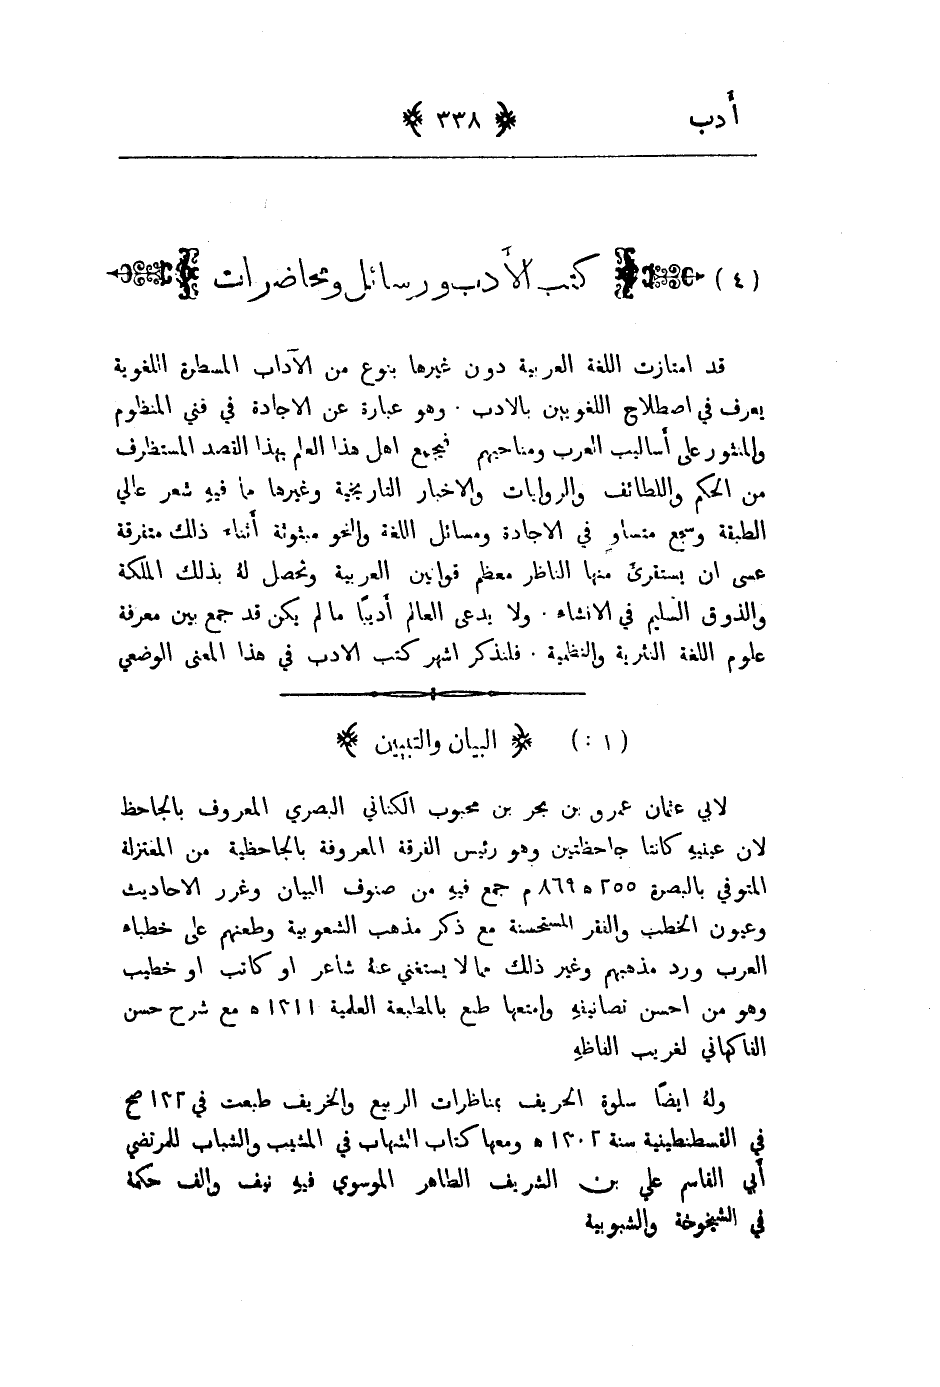 أدب ﴿ ٣٣٨ ﴾
(٤) كتب الأدب ورسائل ومحاضرات
قد امتازت اللغة العربية دون غيرها بنوع من الآداب المسطرة اللغوية
يعرف في اصطلاح اللغويين بالادب . وهو عبارة عن الاجادة في فني المنظوم
والمنثور على أساليب العرب ومناحيهم فيجمع اهل هذا العلم بهذا القصد المستظرف
من الحكم واللطائف والروايات والاخبار التاريخية وغيرها مما فيهِ شعر عالي
الطبقة وسجع متساوٍ في الاجادة ومسائل اللغة والنحو مبثوثة أثناء ذلك متفرقة
عسى ان يستقرئ منها الناظر معظم قوانين العربية وتحصل لهُ بذلك الملكة
والذوق السليم في الانشاء . ولا يدعى العالم أديبًا ما لم يكن قد جمع بين معرفة
علوم اللغة النثرية والنظمية . فلنذكر اشهر كتب الادب في هذا المعنى الوضعي
(١ :) ﴿ البيان والتبيين ﴾
لابي عثمان عمرو بن بحر بن محبوب الكناني البصري المعروف بالجاحظ
لان عينيهِ كانتا جاحظتين وهو رئيس الفرقة المعروفة بالجاحظية من المعتزلة
المتوفي بالبصرة ٢٥٥ ه ٨٦٩ م جمع فيهِ من صنوف البيان وغرر الاحاديث
وعيون الخطب والفقر المستحسنة مع ذكر مذهب الشعوبية وطعنهم على خطباء
العرب ورد مذهبهم وغير ذلك مما لا يستغني عنهُ شاعر او كاتب او خطيب
وهو من احسن تصانيفهِ وامتعها طبع بالمطبعة العلمية ١٣١١ ه مع شرح حسن
الفاكهاني لغريب الفاظهِ
ولهُ ايضًا سلوة الحريف بمناظرات الربيع والخريف طبعت في ١٢٣ صح
في القسطنطينية سنة ١٣٠٢ ه ومعها كتاب الشهاب في المشيب والشباب للمرتضي
أبي القاسم علي بن الشريف الطاهر الموسوي فيهِ نيف والف حكمة
في الشيخوخة والشبوبية